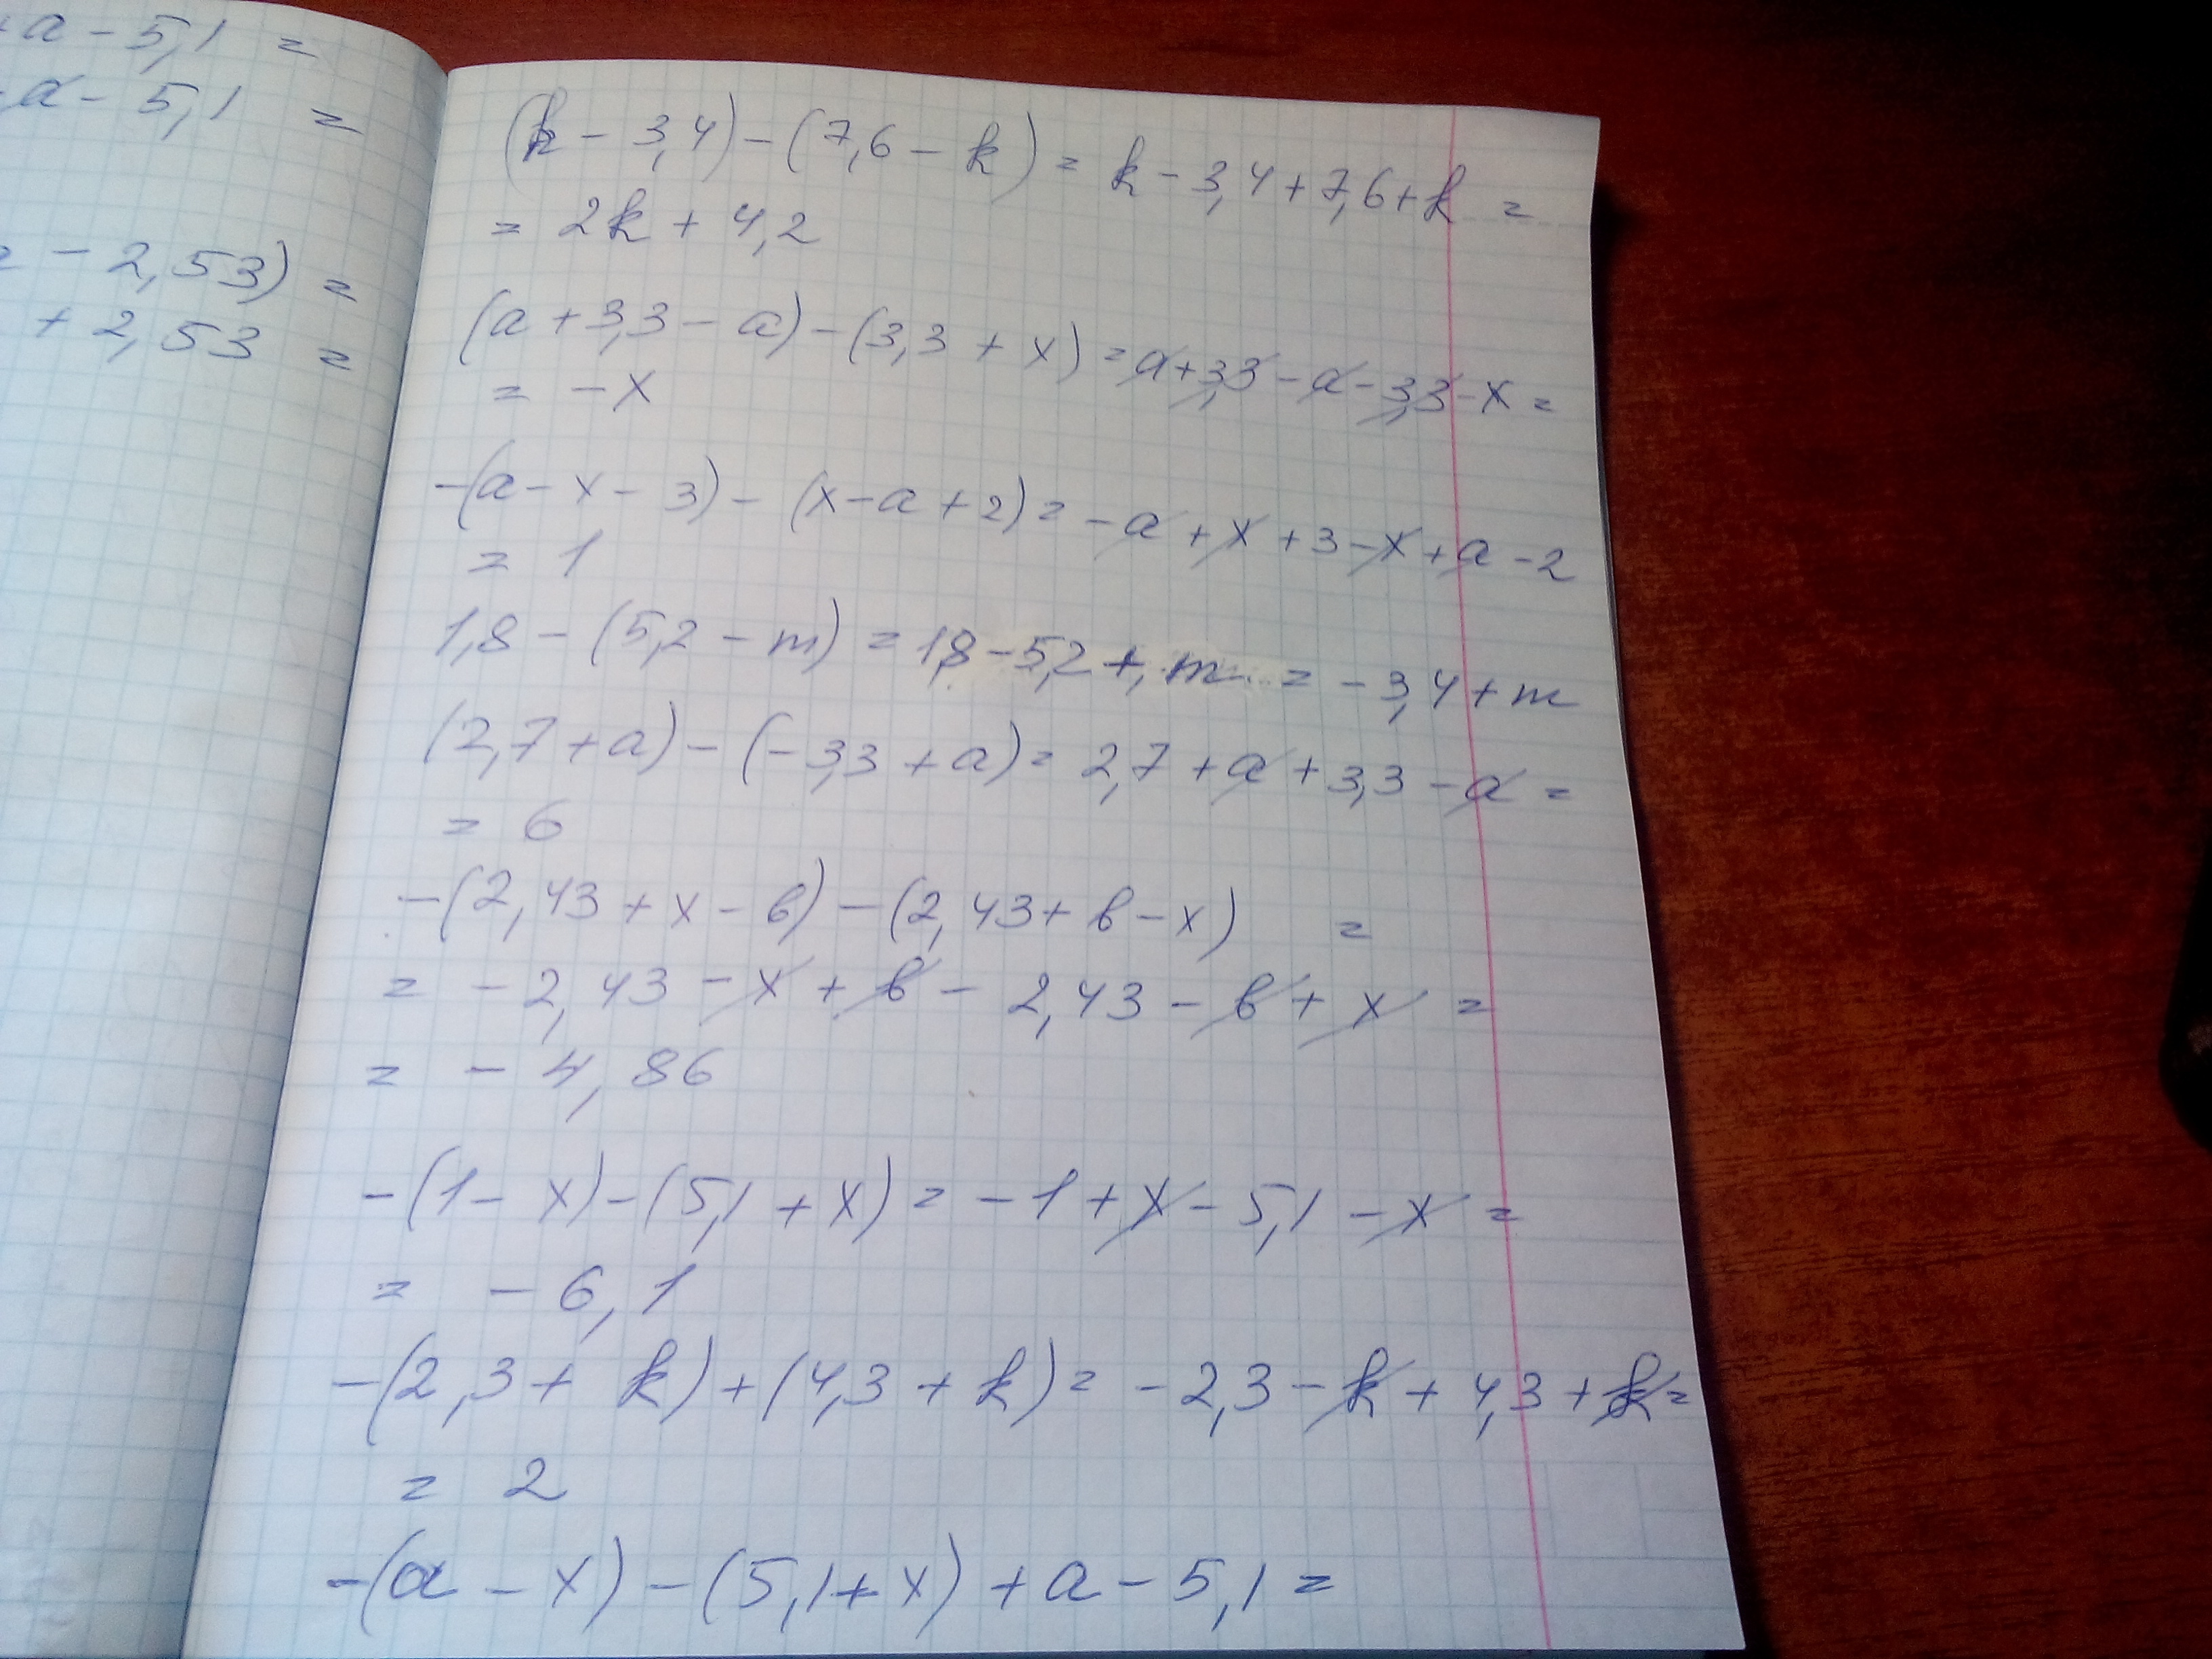 +a - 5,1 =
- a - 5,1 =
- 2,53) =
+ 2,53 =
(k - 3,4) - (7,6 - k) = k - 3,4 + 7,6 + k =
= 2k + 4,2
(a + 3,3 - a) - (3,3 + x) = a + 3,3 - a - 3,3 - x =
= - x
-(a - x - 3) - (x - a + 2) = - a + x + 3 - x + a - 2
= 1
1,8 - (5,2 - m) = 1,8 - 5,2 + m = - 3,4 + m
(2,7 + a) - (- 3,3 + a) = 2,7 + a + 3,3 - a =
= 6
-(2,43 + x - в) - (2,43 + в - x) =
= - 2,43 - x + в - 2,43 - в + x =
= - 4,86
-(1 - x) - (5,1 + x) = - 1 + x - 5,1 - x =
= - 6,1
-(2,3 + k) + (4,3 + k) = - 2,3 - k + 4,3 + k =
= 2
-(a - x) - (5,1 + x) + a - 5,1 =